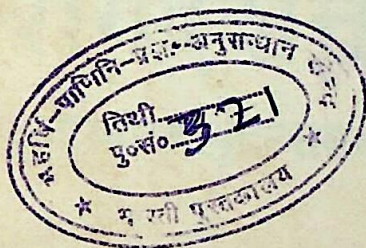 महर्षि-पाणिनि-प्रज्ञा-अनुसन्धान केन्द्र
तिथी
पु०सं० 321
★ भारती पुस्तकालय ★